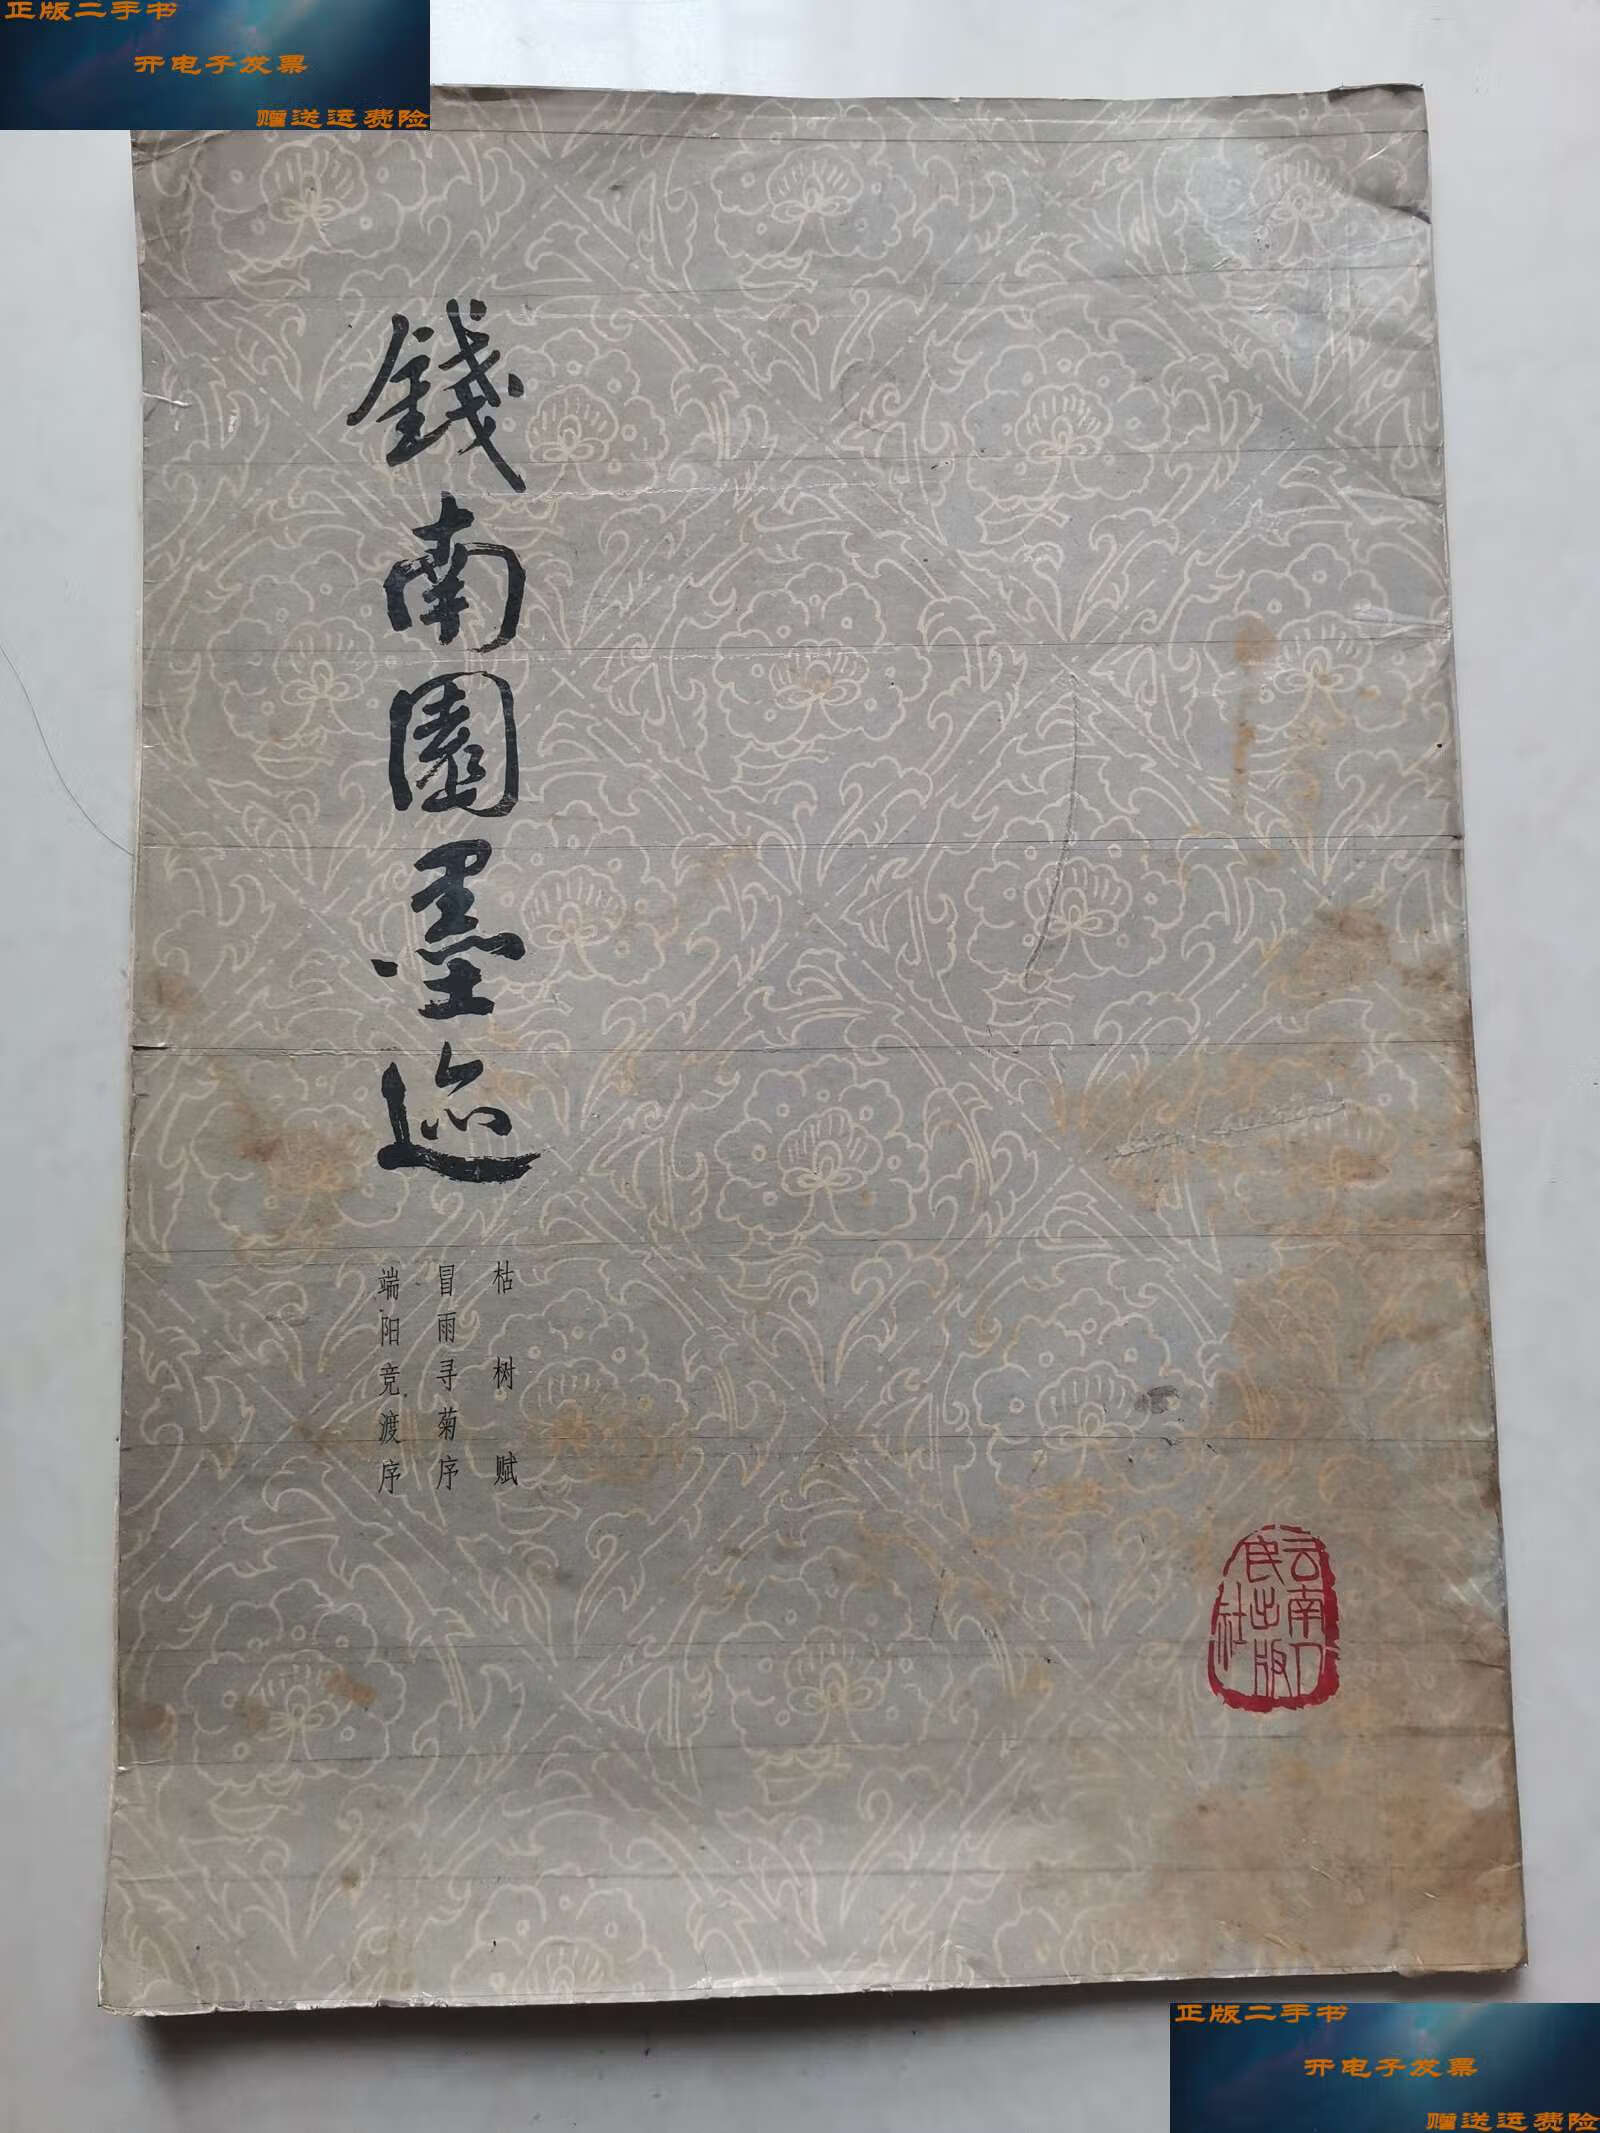 正版二手书
开电子发票
赠送运费险
錢南園墨迹
枯树赋
冒雨寻菊序
端阳竞渡序
云南人
民出版
社
正版二手书
开电子发票
赠送运费险